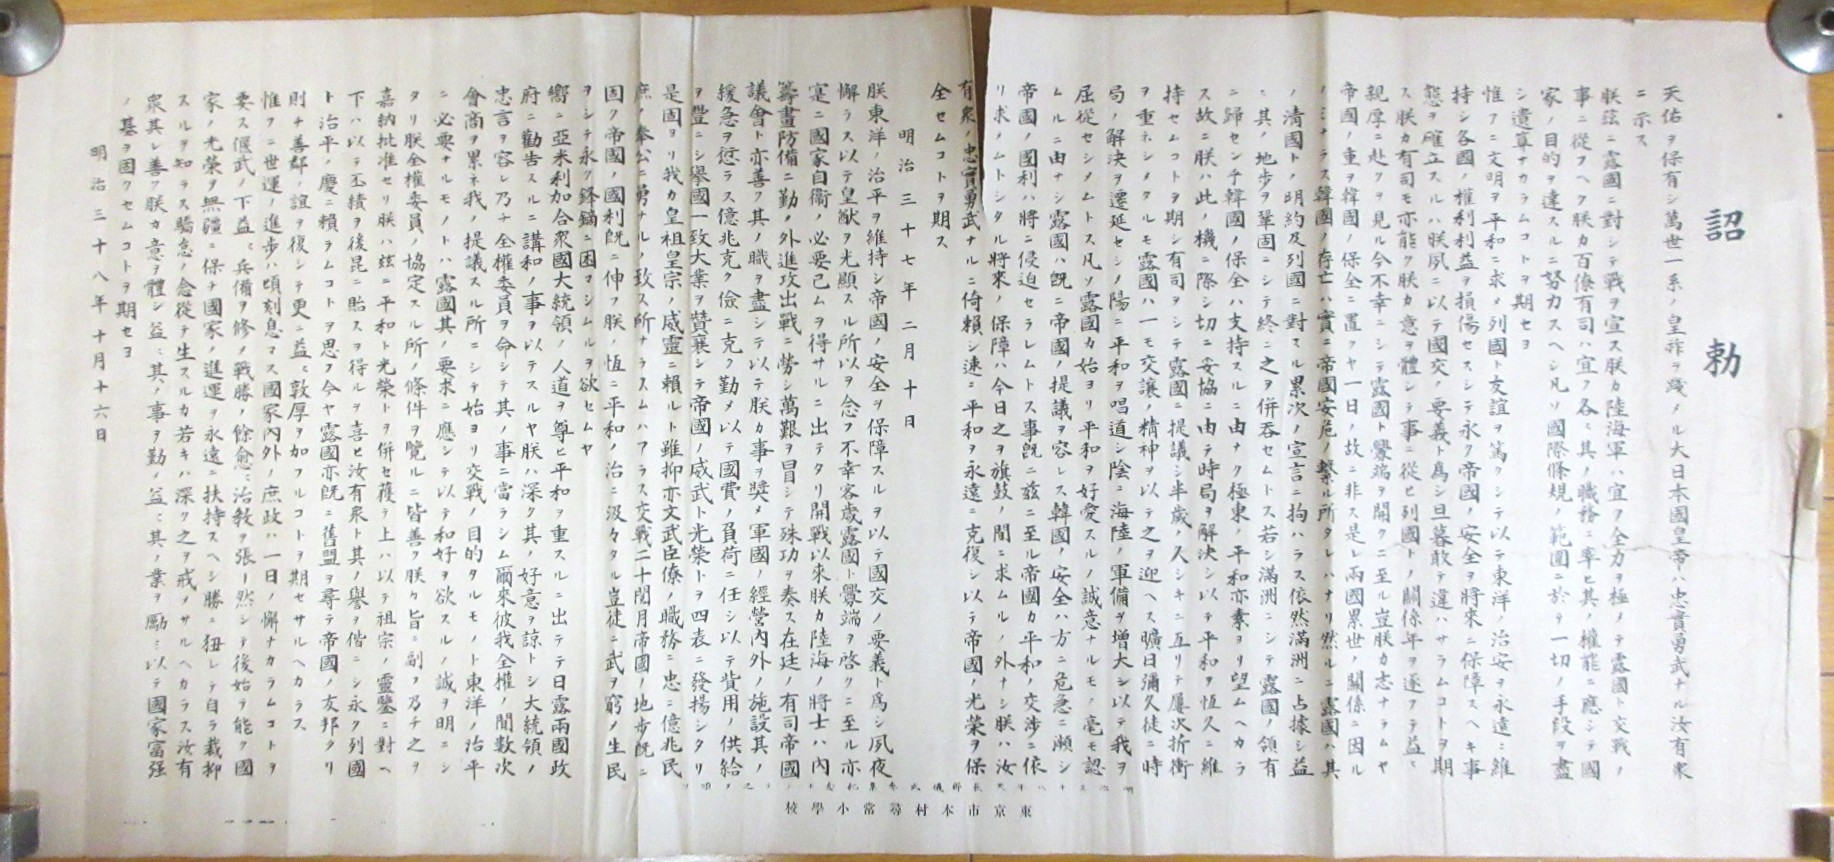 詔勅
天佑ヲ保有シ萬世一系ノ皇祚ヲ踐メル大日本國皇帝ハ忠實勇武ナル汝有衆
ニ示ス
朕玆ニ露國ニ對シテ戰ヲ宣ス朕カ陸海軍ハ宜ク全力ヲ極メテ露國ト交戰ノ
事ニ從フヘク朕カ百僚有司ハ宜ク各〻其ノ職務ニ率ヒ其ノ權能ニ應シテ國
家ノ目的ヲ達スルニ努力スヘシ凡ソ國際條規ノ範圍ニ於テ一切ノ手段ヲ盡
シ遺算ナカラムコトヲ期セヨ
惟フニ文明ヲ平和ニ求メ列國ト友誼ヲ篤クシテ以テ東洋ノ治安ヲ永遠ニ維
持シ各國ノ權利利益ヲ損傷セスシテ永ク帝國ノ安全ヲ將來ニ保障スヘキ事
態ヲ確立スルハ朕夙ニ以テ國交ノ要義ト爲シ旦暮敢テ違ハサラムコトヲ期
ス朕カ有司モ亦能ク朕カ意ヲ體シテ事ニ從ヒ列國トノ關係年ヲ逐フテ益〻
親厚ニ赴クヲ見ル今不幸ニシテ露國ト釁端ヲ開クニ至ル豈朕カ志ナラムヤ
帝國ノ重ヲ韓國ノ保全ニ置クヤ一日ノ故ニ非ス是レ兩國累世ノ關係ニ因ル
ノミナラス韓國ノ存亡ハ實ニ帝國安危ノ繫ル所タレハナリ然ルニ露國ハ其
ノ淸國トノ明約及列國ニ對スル累次ノ宣言ニ拘ハラス依然滿洲ニ占據シ益
〻其ノ地步ヲ鞏固ニシテ終ニ之ヲ併呑セムトス若シ滿洲ニシテ露國ノ領有
ニ歸センカ韓國ノ保全ハ支持スルニ由ナク極東ノ平和亦素ヨリ望ムヘカラ
ス故ニ朕ハ此ノ機ニ際シ切ニ妥協ニ由テ時局ヲ解決シ以テ平和ヲ恆久ニ維
持セムコトヲ期シ有司ヲシテ露國ニ提議シ半歲ノ久シキニ亙リテ屢次折衝
ヲ重ネシメタルモ露國ハ一モ交讓ノ精神ヲ以テ之ヲ迎ヘス曠日彌久徒ニ時
局ノ解決ヲ遷延セシメ陽ニ平和ヲ唱道シ陰ニ海陸ノ軍備ヲ增大シ以テ我ヲ
屈從セシメムトス凡ソ露國カ始ヨリ平和ヲ好愛スルノ誠意ナルモノ毫モ認
ムルニ由ナシ露國ハ既ニ帝國ノ提議ヲ容レス韓國ノ安全ハ方ニ危急ニ瀕シ
帝國ノ國利ハ將ニ侵迫セラレムトス事既ニ玆ニ至ル帝國カ平和ノ交涉ニ依
リ求メムトシタル將來ノ保障ハ今日之ヲ旗鼓ノ間ニ求ムルノ外ナシ朕ハ汝
有衆ノ忠實勇武ナルニ倚賴シ速ニ平和ヲ永遠ニ克復シ以テ帝國ノ光榮ヲ保
全セムコトヲ期ス
明治三十七年二月十日
朕東洋ノ治平ヲ維持シ帝國ノ安全ヲ保障スルヲ以テ國交ノ要義ト爲シ夙夜
懈ラス以テ皇猷ヲ光顯スル所以ヲ念フ不幸客歲露國ト釁端ヲ啓クニ至ル亦
寔ニ國家自衞ノ必要已ムヲ得サルニ出テタリ開戰以來朕カ陸海ノ將士ハ內
籌畫防備ニ勤メ外進攻出戰ニ勞シ萬艱ヲ冒シテ殊功ヲ奏ス在廷ノ有司帝國
議會ト亦善ク其ノ職ヲ盡シテ以テ朕カ事ヲ奬メ軍國ノ經營內外ノ施設其ノ
緩急ヲ愆ラス億兆克ク儉ニ克ク勤メ以テ國費ノ負荷ニ任シ以テ貲用ノ供給
ヲ豐ニシ擧國一致大業ヲ贊襄シテ帝國ノ威武ト光榮トヲ四表ニ發揚シタリ
是固ヨリ我カ皇祖皇宗ノ威靈ニ賴ルト雖抑亦文武臣僚ノ職務ニ忠ニ億兆民
庶ノ奉公ニ勇ナルノ致ス所ナラスムハアラス交戰二十閱月帝國ノ地步既ニ
固ク帝國ノ國利既ニ伸フ朕ノ恆ニ平和ノ治ニ汲々タル豈徒ニ武ヲ窮メ生民
ヲシテ永ク鋒鏑ニ困マシムルヲ欲セムヤ
嚮ニ亞米利加合衆國大統領ノ人道ヲ尊ヒ平和ヲ重スルニ出テテ日露兩國政
府ニ勸吿スルニ講和ノ事ヲ以テスルヤ朕ハ深ク其ノ好意ヲ諒トシ大統領ノ
忠言ヲ容レ乃チ全權委員ヲ命シテ其ノ事ニ當ラシム爾來彼我全權ノ間數次
會商ヲ累ネ我ノ提議スル所ニシテ始ヨリ交戰ノ目的タルモノト東洋ノ治平
ニ必要ナルモノトハ露國其ノ要求ニ應シテ以テ和好ヲ欲スルノ誠ヲ明ニシ
タリ朕全權委員ノ協定スル所ノ條件ヲ覽ルニ皆善ク朕カ旨ニ副フ乃チ之ヲ
嘉納批准セリ朕ハ玆ニ平和ト光榮トヲ併セ獲テ上ハ以テ祖宗ノ靈鑒ニ對ヘ
下ハ以テ丕績ヲ後昆ニ貽スヲ得ルヲ喜ヒ汝有衆ト其ノ譽ヲ偕ニシ永ク列國
ト治平ノ慶ニ賴ラムコトヲ思フ今ヤ露國亦既ニ舊盟ヲ尋テ帝國ノ友邦タリ
則チ善鄰ノ誼ヲ復シテ更ニ益〻敦厚ヲ加フルコトヲ期セサルヘカラス
惟フニ世運ノ進步ハ頃刻息マス國家內外ノ庶政ハ一日ノ懈ナカラムコトヲ
要ス偃武ノ下益〻兵備ヲ修メ戰勝ノ餘愈〻治敎ヲ張リ然シテ後始テ能ク國
家ノ光榮ヲ無疆ニ保チ國家ノ進運ヲ永遠ニ扶持スヘシ勝ニ狃レテ自ラ裁抑
スルヲ知ラス驕怠ノ念從テ生スルカ若キハ深ク之ヲ戒メサルヘカラス汝有
衆其レ善ク朕カ意ヲ體シ益〻其ノ事ヲ勤メ益〻其ノ業ヲ勵ミ以テ國家富强
ノ基ヲ固クセムコトヲ期セヨ
明治三十八年十月十六日
東京市本村尋常小學校